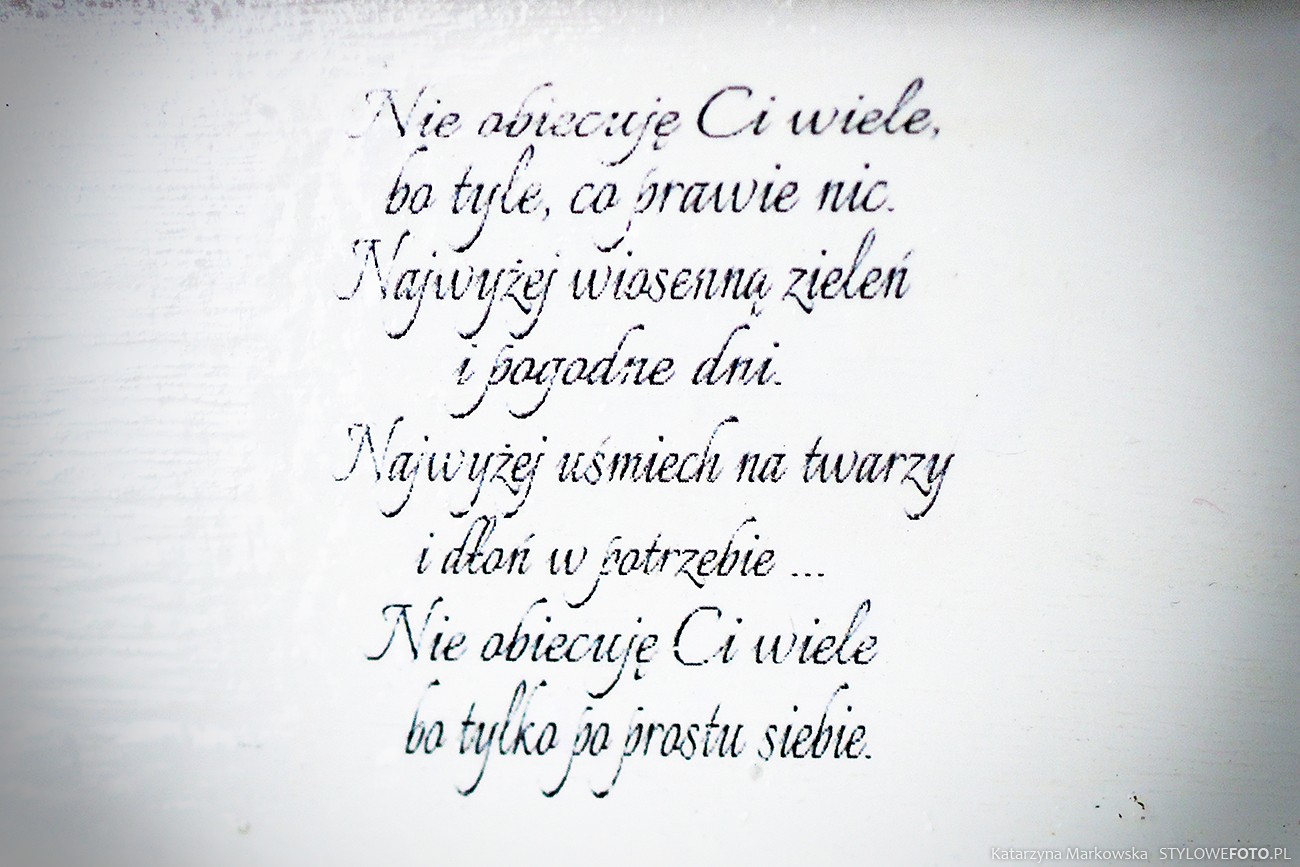 Nie obiecuję Ci wiele,
bo tyle, co prawie nic.
Najwyżej wiosenną zieleń
i pogodne dni.
Najwyżej uśmiech na twarzy
i dłoń w potrzebie ...
Nie obiecuję Ci wiele
bo tylko po prostu siebie.
Katarzyna Markowska STYLOWEFOTO.PL